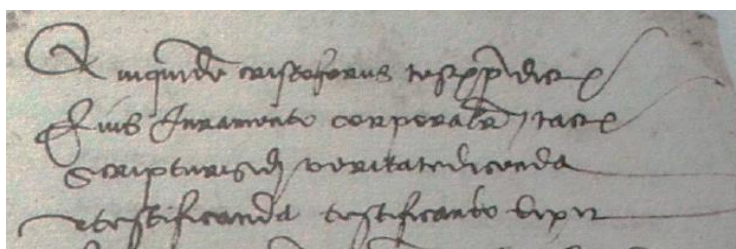 Qui quidem cristoforus testis pre dict
Eius Juramento corporalr tact
Scripturis de veritate dicenda
et testificanda testificando dixit